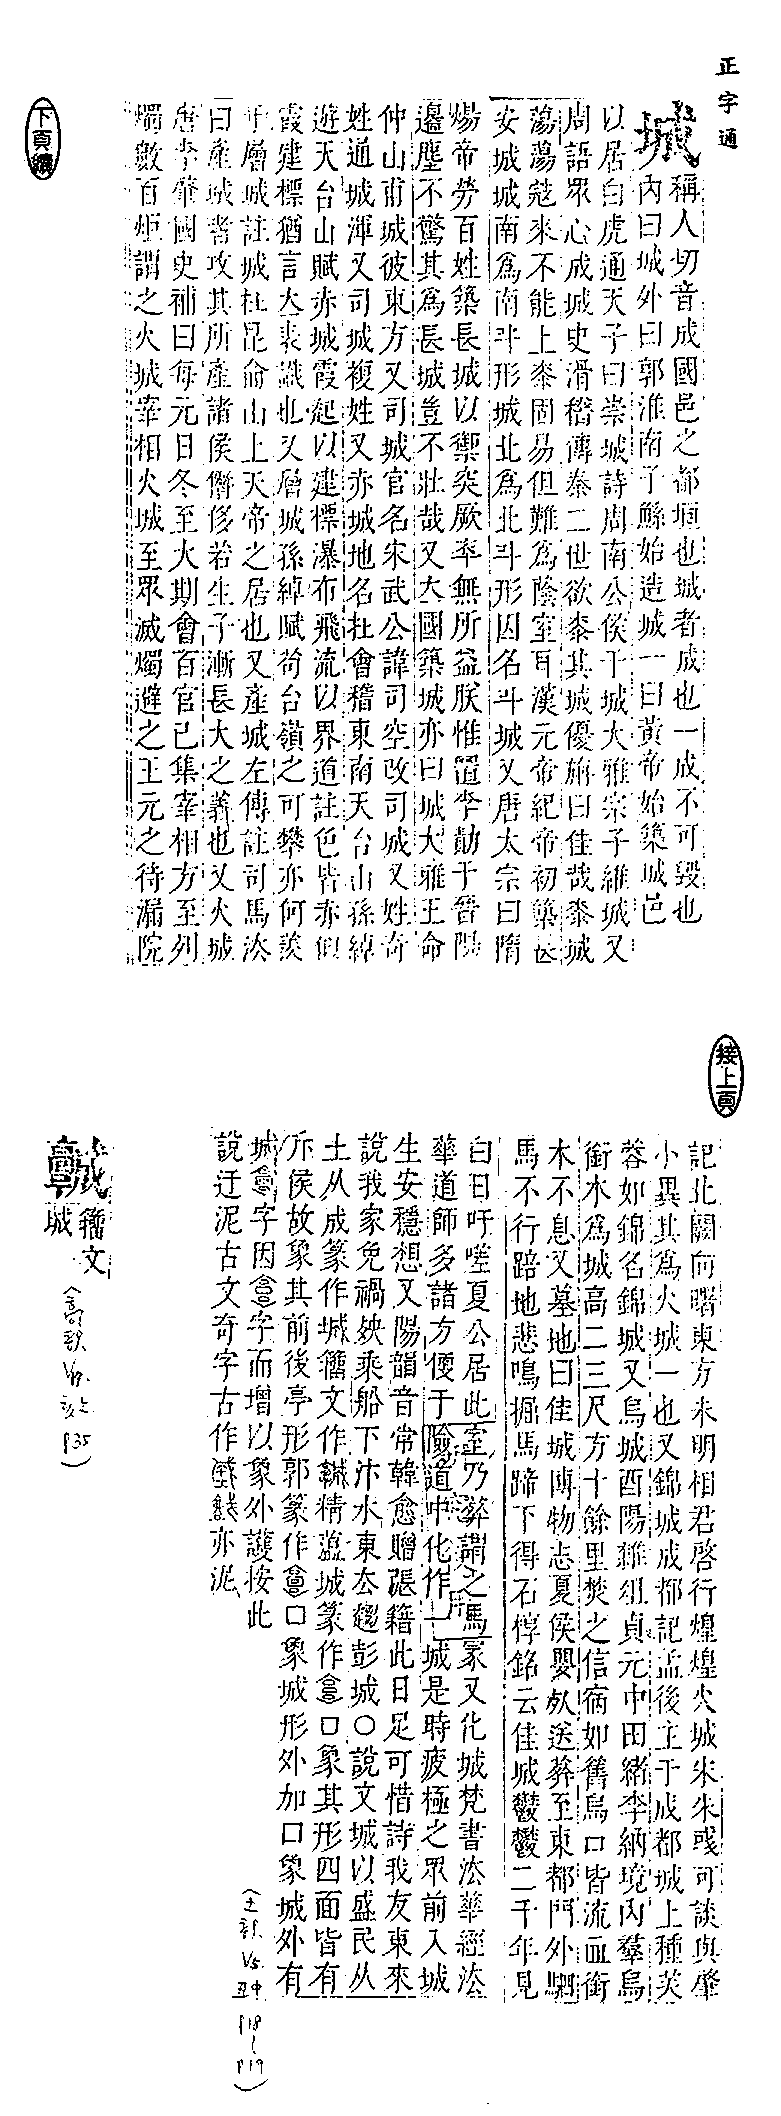 正字通
城
稱人切音成國邑之都垣也城者成也一成不可毀也
內曰城外曰郭淮南子鯀始造城一曰黃帝始築城邑
以居白虎通天子曰崇城詩周南公侯干城大雅宗子維城又
周語眾心成城史滑稽傳秦二世欲桼其城優旃曰佳哉桼城
蕩蕩寇來不能上桼固易但難爲陰室耳漢元帝紀帝初築長
安城城南爲南斗形城北爲北斗形因名斗城又唐太宗曰隋
煬帝勞百姓築長城以禦突厥卒無所益朕惟置李勣于晉陽
邊塵不驚其爲長城豈不壯哉又大國築城亦曰城大雅王命
仲山甫城彼東方又司城官名宋武公諱司空改司城又姓奇
姓通城渾又司城複姓又赤城地名在會稽東南天台山孫綽
遊天台山賦赤城霞起以建標瀑布飛流以界道註色皆赤似
霞建標猶言大表識也又層城孫綽賦苟台嶺之可攀亦何羨
于層城註城在昆侖山上天帝之居也又產城左傳註司馬法
曰產城者攻其所產諸侯僭侈若生子漸長大之義也又火城
唐李肇國史補曰每元日冬至大期會百官已集宰相方至列
燭數百炬謂之火城宰相火城至眾滅燭避之王元之待漏院
下頁續
接上頁
記北闕向曙東方未明相君啓行煌煌火城宋朱彧可談與肇
小異其爲火城一也又錦城成都記孟後主于成都城上種芙
蓉如錦名錦城又烏城酉陽雜俎貞元中田緒李納境內羣烏
銜木爲城高二三尺方十餘里焚之信宿如舊烏口皆流血銜
木不息又墓地曰佳城博物志夏侯嬰死送葬至東都門外駟
馬不行踣地悲鳴掘馬蹄下得石椁銘云佳城鬱鬱二千年見
白日吁嗟夏公居此室乃葬謂之馬冢又化城梵書法華經法
華道師多諸方便于險道中化作一城是時疲極之眾前入城
生安穩想又陽韻音常韓愈贈張籍此日足可惜詩我友東來
說我家免禍殃乘船下汴水東去趨彭城〇說文城以盛民从
土从成篆作城籒文作𩫨精薀城篆作𩫖口象其形四面皆有
斥侯故象其前後亭形郭篆作𩫖口象城形外加口象城外有
城𩫖字因𩫖字而增以象外護按此
說迂泥古文奇字古作亦泥
(土部 V5. 丑中 P18~P19)
𩫨
籒文
城
(高部 V12. 亥上 P35)